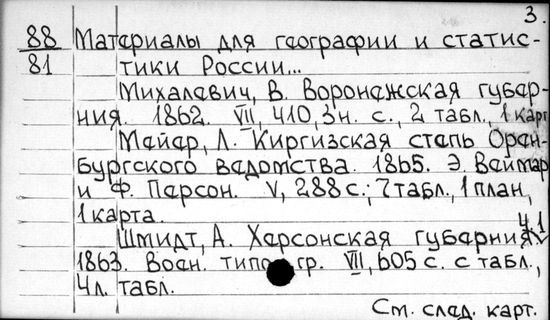 3.
88 Материалы для географии и статис-
81 тики России...
Михалевич, В. Воронежская губер-
ния. 1862. VII, 410, 3н. с., 2 табл., 1 карт
Мейер, Л. Киргизская степь Орен-
бургского ведомства. 1865. Э. Веймар
и Ф. Персон. V, 288 с.; 7 табл., 1 план,
1 карта.
Шмидт, А. Херсонская губерния Ч.1
1863. Воен. типогр. VII, 605 с. с табл.,
4 л. табл.
См. след. карт.